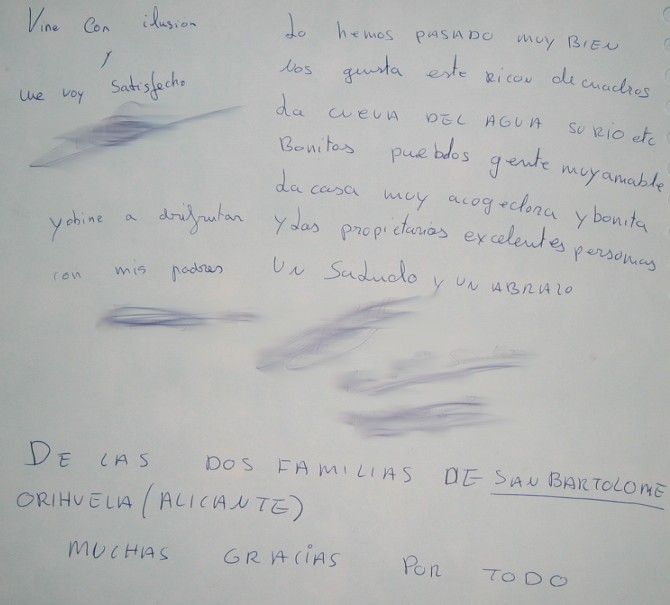 Vine Con ilusion
y
me voy Satisfecho
yobine a disfrutar
con mis padres
Lo hemos PASADO MUY BIEN
Nos gusta este ricon de cuadros
La CUEVA DEL AGUA SU RIO etc
Bonitos pueblos gente muy amable
La casa muy acogedora y bonita
y Las propietarias excelentes personas
UN Saludo y UN ABRAZO
DE LAS DOS FAMILIAS DE SAN BARTOLOME
ORIHUELA (ALICANTE)
MUCHAS GRACIAS POR TODO